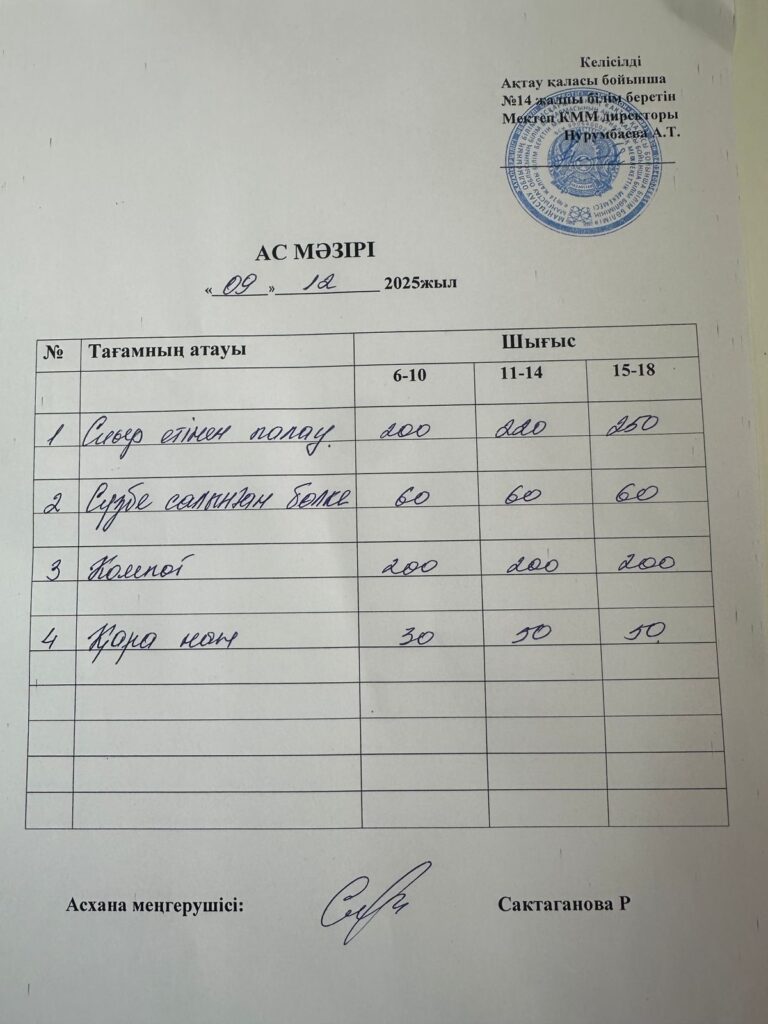 Келісілді
Ақтау қаласы бойынша
№14 жалпы білім беретін
Мектеп КММ директоры
Нурумбаева А.Т.
АС МӘЗІРІ
« 09 » 12 2025жыл
№ Тағамның атауы Шығыс
6-10 11-14 15-18
1 Сиыр етінен палау 200 220 250
2 Сүзбе салынған бөлке 60 60 60
3 Компот 200 200 200
4 Қара нан 30 50 50
Асхана меңгерушісі: Сактаганова Р